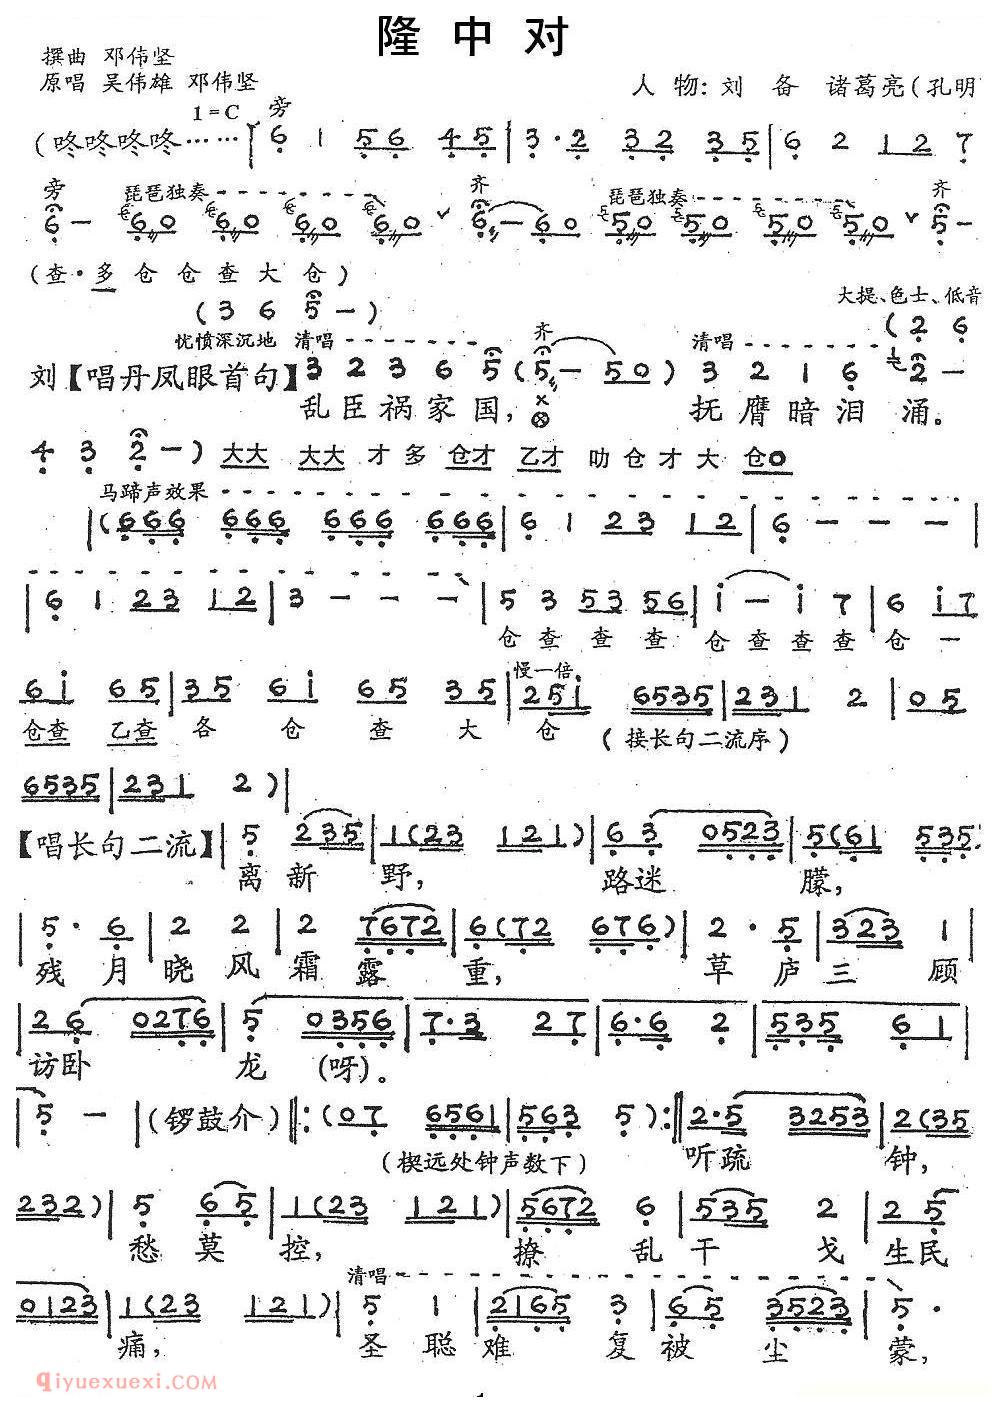 隆中对
撰曲 邓伟坚
原唱 吴伟雄 邓伟坚
人物: 刘备 诸葛亮(孔明
1=C 旁
(咚咚咚咚…… 6 1 56 45 | 3·2 32 35 | 6 2 12 7
旁 琵琶独奏 齐 琵琶独奏 齐
6 - 60 60 60 60 ˇ 6 - 60 50 50 50 50 ˇ 5 -
(查·多 仓 仓 查 大 仓)
大提、色士、低音
(3 6 5 -) (2 6
忧愤深沉地 清唱 齐 清唱
刘【唱丹凤眼首句】3 2 3 6 5 (5 - 50) 3 2 1 6 2 -
乱臣祸家国, 抚膺暗泪涌。
4 3 2 -) 大大 大大 才 多 仓才 乙才 叻 仓 才 大 仓0
马蹄声效果
|(666 666 666 666 | 6 1 23 12 | 6 - - - |
| 6 1 23 12 | 3 - - - | 5 3 53 56 | i - i 7 | 6 i7
仓 查 查 查 仓 查 查 查 仓 一
慢一倍
6i 65 | 35 6i 65 35 | 25i 6535 | 231 2 | 05
仓查 乙查 各 仓 查 大 仓 (接长句二流序)
6535 | 231 2) |
【唱长句二流】| 5 235 | 1(23 121) | 63 0523 | 5(61 535
离新野, 路迷朦,
| 5· 6 | 2 2 | 2 7672 | 6(72 676) | 2· 5 | 323 1 |
残月晓风霜露重, 草庐三顾
| 26 0276 | 5 0356 | 7·3 27 | 6·6 2 | 535 61 |
访卧龙(呀)。
| 5 - | (锣鼓介) ‖: (07 6561 | 563 5) :‖ 2·5 3253 | 2(35
(楔远处钟声数下) 听疏钟,
232) | 5 65 | 1(23 121) | 5672 6 | 535 2 | 2 5
愁莫控, 撩乱干戈生民
清唱
0123 | 1(23 121) | 5 1 | 2165 3 | 65 3523 | 5·
痛, 圣聪难复被尘蒙,
qiyuexuexi.com
1